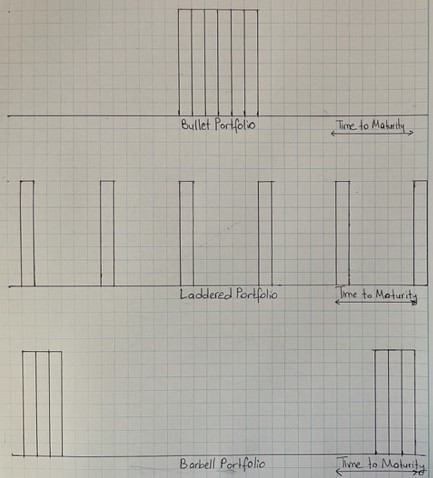 Bullet Portfolio
Time to Maturity
Laddered Portfolio
Time to Maturity
Barbell Portfolio
Time to Maturity